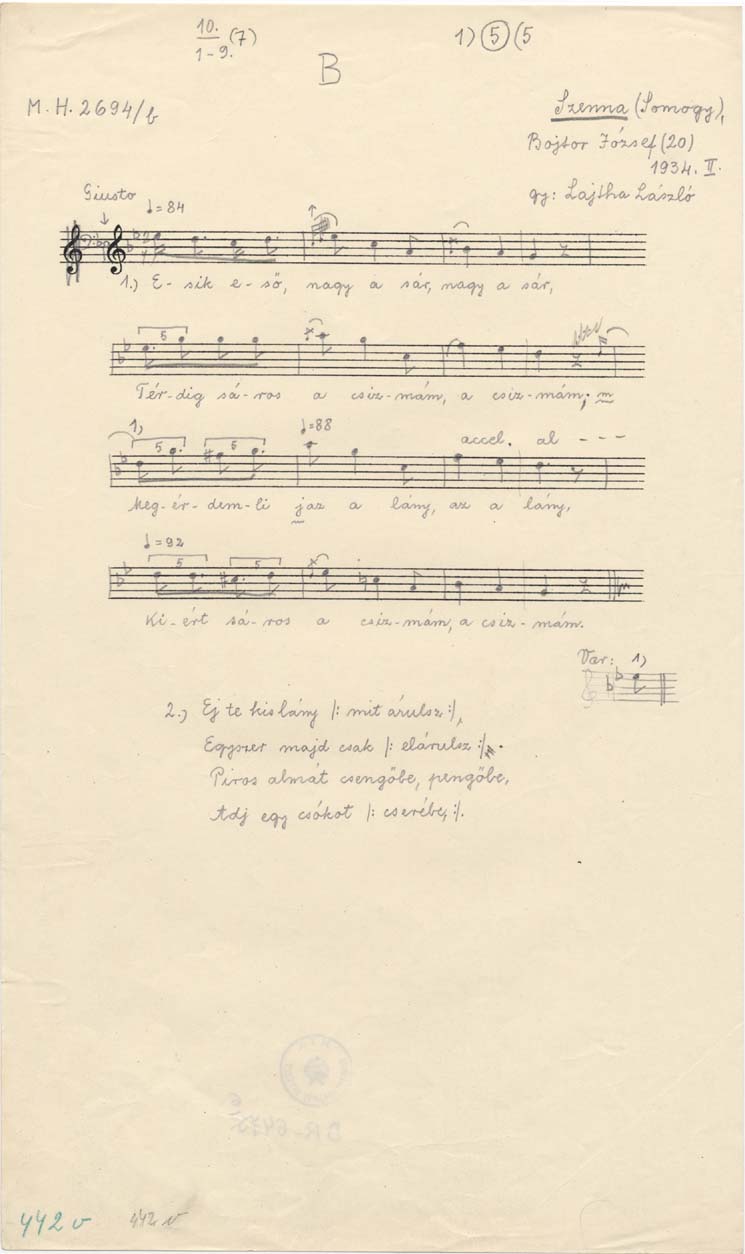 10. (7)
1-9.
1) 5 (5
B
M. H. 2694/b
Szenna (Somogy),
Bojtor József (20)
1934. II.
gy: Lajtha László
Giusto
♩=84
1.) E-sik e-ső, nagy a sár, nagy a sár,
5
Tér-dig sá-ros a csiz-mám, a csiz-mám; m
1) 5 5 ♩=88
accel. al ---
Meg-ér-dem-li jaz a lány, az a lány,
♩=92
5 5
Ki-ért sá-ros a csiz-mám, a csiz-mám.
Var: 1)
2.) Ej te kislány |: mit árulsz :|,
Egyszer majd csak |: elárulsz :|.
Piros almát csengőbe, pengőbe,
Adj egy csókot |: cserébe, :|.
442 v 442 v